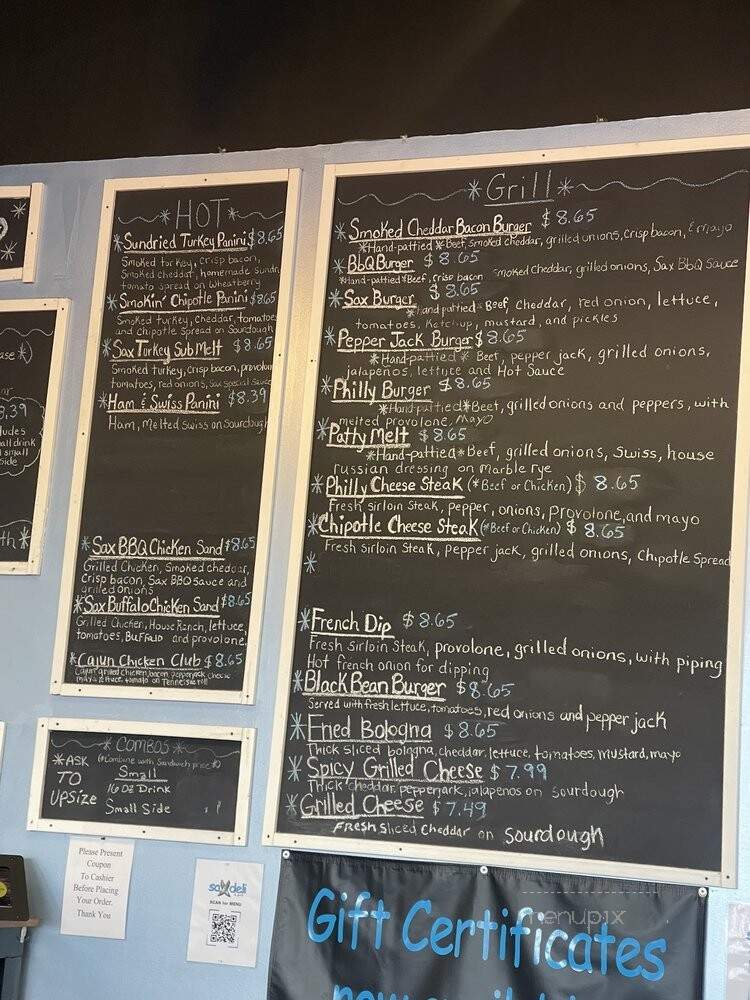 ase *)
8.39
ludes
all drink
small
side
th *
*HOT*
*Sundried Turkey Panini $8.65
Smoked turkey, crisp bacon,
Smoked cheddar, homemade Sundri
tomato spread on Wheatberry
*Smokin' Chipotle Panini $8.65
Smoked turkey, cheddar, tomatoes
and Chipotle Spread on Sourdough
*Sax Turkey Sub Melt $8.65
Smoked turkey, crisp bacon, provolon
tomatoes, red onions, Sax special sauce
*Ham & Swiss Panini $8.39
Ham, Melted Swiss on Sourdough
*Sax BBQ Chicken Sand $8.65
Grilled Chicken, Smoked cheddar,
Crisp bacon, Sax BBQ Sauce and
grilled onions
*Sax Buffalo Chicken Sand $8.65
Grilled Chicken, House Ranch, lettuce,
tomatoes, Buffalo and provolone
*Cajun Chicken Club $8.65
Cajun grilled chicken, bacon, pepperjack cheese
mayo lettuce, tomato on
*Combos*
(*Combine with Sandwich price*)
*ASK
TO
UPSIZE
Small
16 OZ Drink
Small Side
*Grill*
*Smoked Cheddar Bacon Burger $8.65
*Hand-pattied*Beef, smoked cheddar, grilled onions, crisp bacon, & mayo
*BbQ Burger $8.65
*Hand-pattied*Beef, crisp bacon smoked Cheddar, grilled onions, Sax BbQ Sauce
*Sax Burger $8.65
*Hand pattied* Beef, Cheddar, red onion, lettuce,
tomatoes, Ketchup, mustard, and pickles
*Pepper Jack Burger $8.65
*Hand-pattied* Beef, pepper jack, grilled onions,
jalapeños, lettuce and Hot Sauce
*Philly Burger $8.65
*Hand-pattied*Beef, grilled onions and peppers, with
melted provolone, mayo
*Patty Melt $8.65
*Hand-pattied*Beef, grilled onions, Swiss, house
russian dressing on marble rye
*Philly Cheese Steak (*Beef or Chicken) $8.65
Fresh sirloin Steak, pepper, onions, Provolone, and mayo
*Chipotle Cheese Steak (*Beef or Chicken) $8.65
Fresh Sirloin Steak, pepper jack, grilled onions, Chipotle Spread
*
*French Dip $8.65
Fresh Sirloin Steak, provolone, grilled onions, with piping
Hot french onion for dipping
*Black Bean Burger $8.65
Served with fresh lettuce, tomatoes, red onions and pepper jack
*Fried Bologna $8.65
Thick sliced bologna, cheddar, lettuce, tomatoes, mustard, mayo
*Spicy Grilled Cheese $7.99
Thick cheddar, pepperjack, jalapenos on sourdough
*Grilled Cheese $7.49
Fresh sliced cheddar on Sourdough
Please Present
Coupon
To Cashier
Before Placing
Your Order.
Thank You
deli
SCAN for MENU
Gift Certificates
menupix